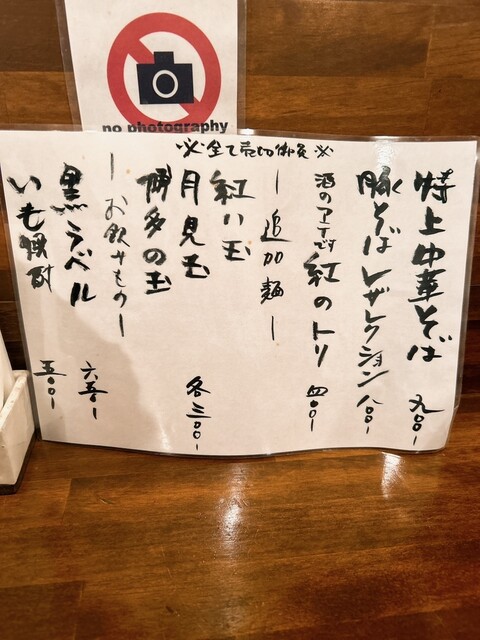 no photography
※全て売切御免※
特上中華そば 九〇〇-
豚そばレザレクション 八〇〇-
酒のアテです 紅のトリ 四〇〇-
-追加麺-
紅い玉
月見玉 各三〇〇-
博多の玉
-お飲みもの-
黒ラベル 六五〇-
いも焼酎 五〇〇-